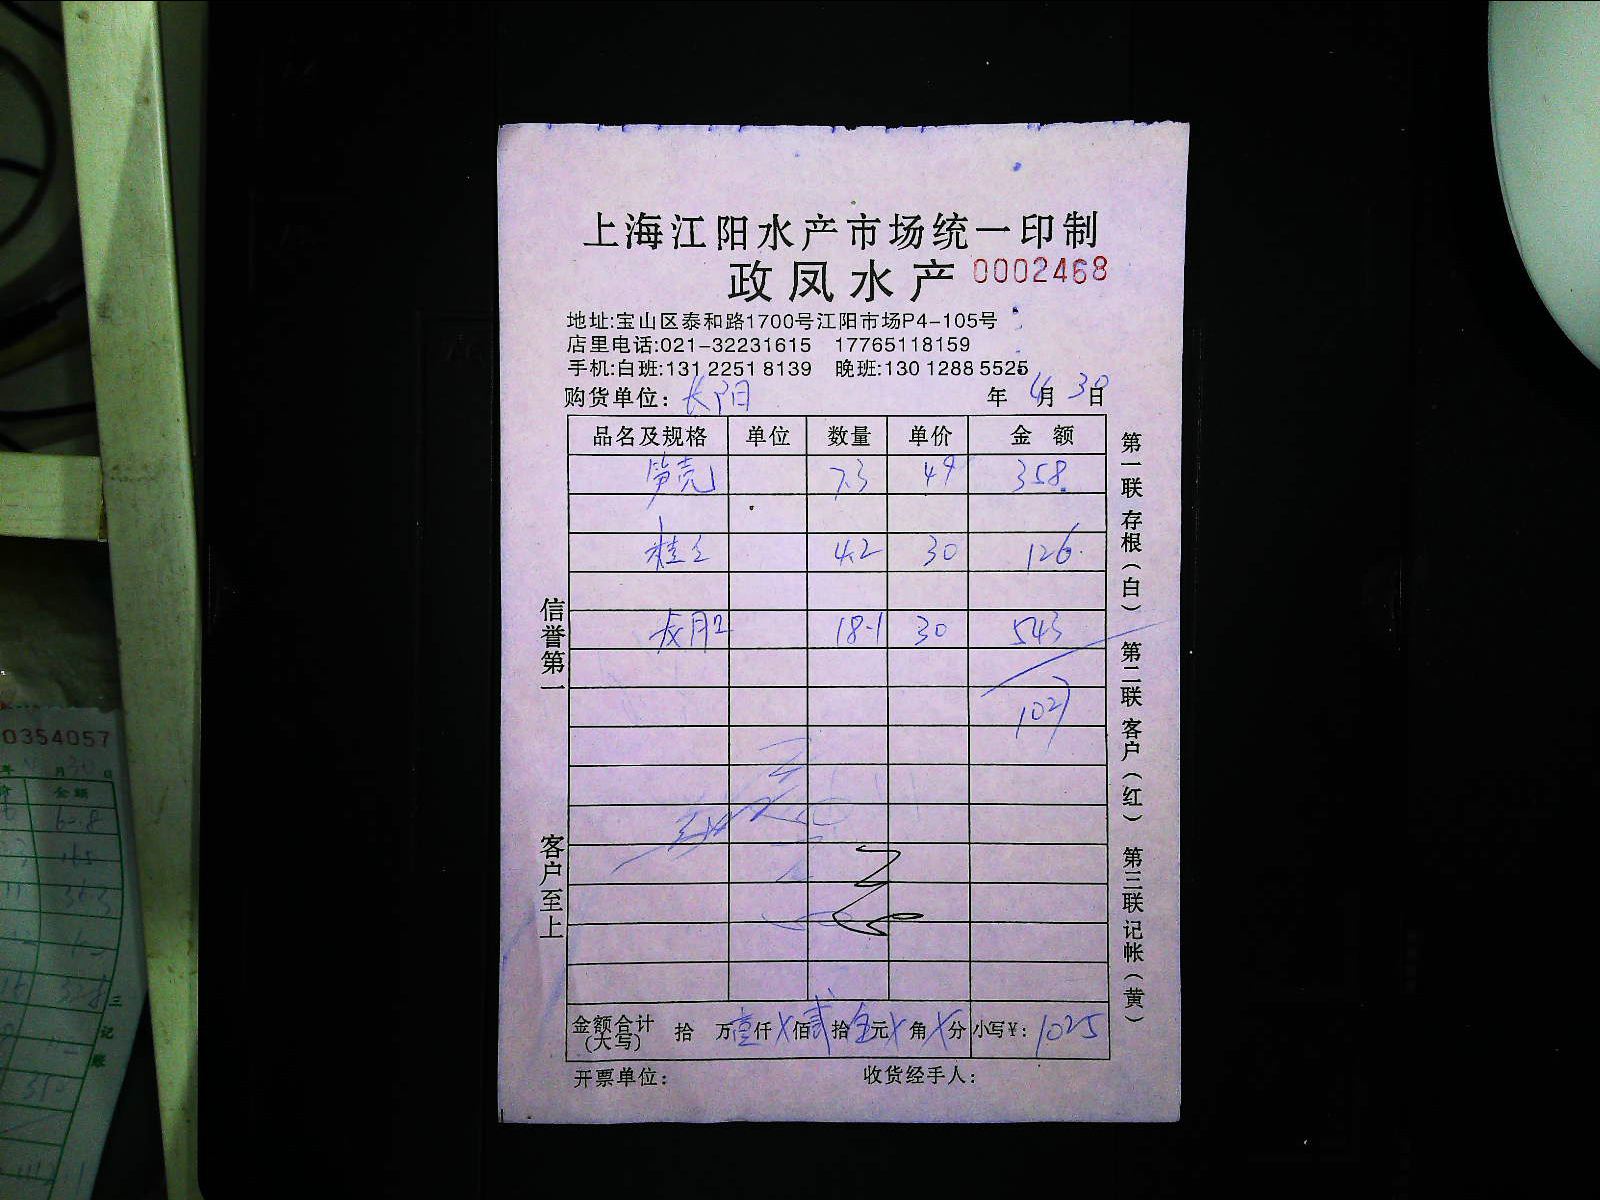 上海江阳水产市场统一印制
政凤水产 0002468
地址:宝山区泰和路1700号江阳市场P4-105号
店里电话:021-32231615 17765118159
手机:白班:131 2251 8139 晚班:130 1288 5525
购货单位: 长阳 年 4月 30日
品名及规格 单位 数量 单价 金额
笋壳 7.3 49 358.
桂 4.2 30 126.
18.1 30 543
1027
金额合计(大写) 拾 万壹仟X佰贰拾 元X角X分 小写¥: 1025
开票单位: 收货经手人:
信誉第一 客户至上
第一联 存根(白) 第二联 客户(红) 第三联 记帐(黄)
0354057
年 月 30日
价 金额
165
三
记
账